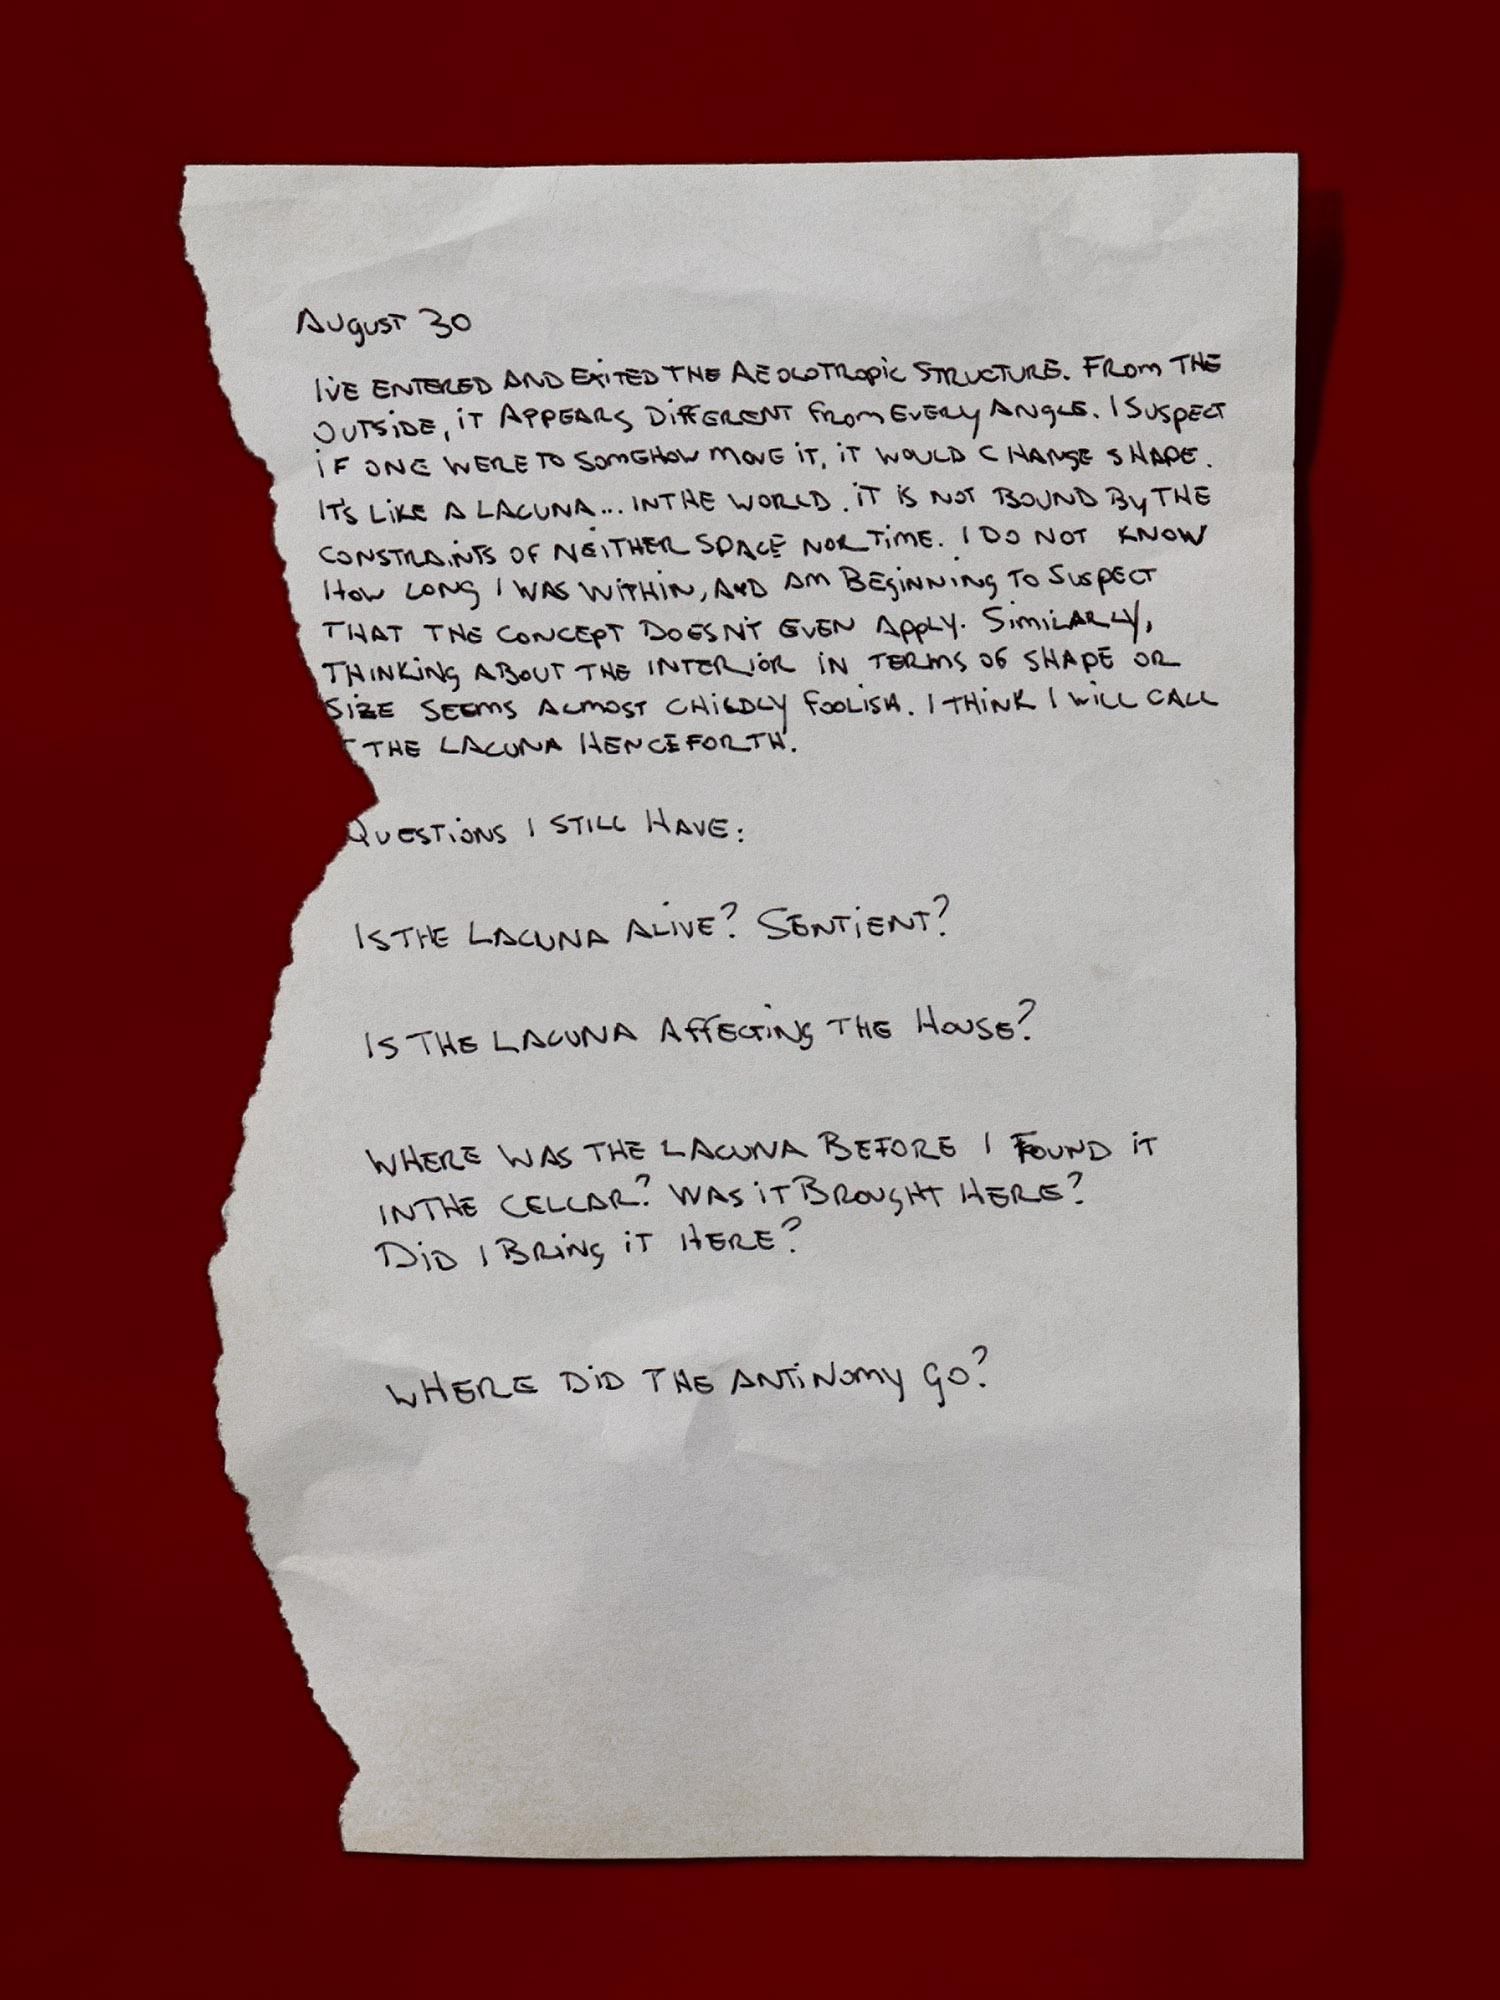 August 30
I've entered and exited the Aeolotropic structure. From the
outside, it appears different from every angle. I suspect
if one were to somehow move it, it would change shape.
It's like a lacuna... in the world. It is not bound by the
constraints of neither space nor time. I do not know
how long I was within, and am beginning to suspect
that the concept doesn't even apply. Similarly,
thinking about the interior in terms of shape or
size seems almost childly foolish. I think I will call
the Lacuna henceforth.
Questions I still have:
Is the Lacuna alive? Sentient?
Is the Lacuna affecting the House?
Where was the Lacuna before I found it
in the cellar? Was it brought here?
Did I bring it here?
Where did the antinomy go?